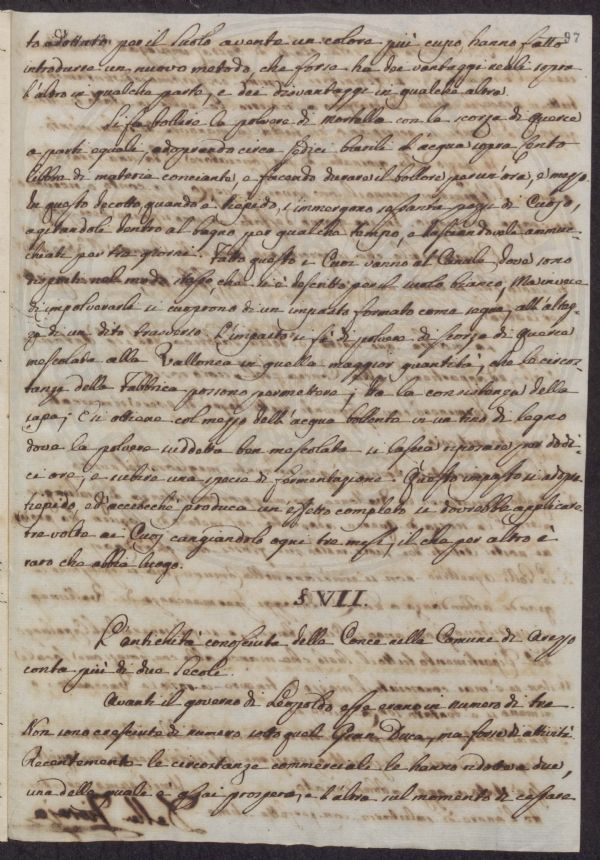 97
to adottato per il suolo avente un colore più cupo hanno fatto
introdurre un nuovo metodo, che forse ha dei vantaggi reali sopra
l'altro in qualche parte, e dei disvantaggi in qualche altra.
Si fa bollire la polvere di mortella con la scorza di querce
a parti eguali, adoprando circa sedici barili d'acqua sopra cento
libbre di materia conciante e facendo durare il bollore per un'ora, e mezzo.
In questo decotto quando è tiepido, s'immergono sessanta pezzi di Cuojo,
agitandoli dentro al bagno per qualche tempo, e lasciandovele ammuc-
chiati per tre giorni. Fatto questo i Cuoj vanno al Canale, dove sono
disposte nel modo stesso, che si è descritto per il suolo bianco, Ma invece
d'impolverarle si cuoprono di un impasto formato come segue, all'altez-
za di un dito trasverso. L'impasto si fa di polvere di scorza di querce
mescolata alla Vallonea in quella maggior quantità, che le circos-
tanze della Fabbrica possono permettere; Ha la consistenza della
sapa; e si ottiene col mezzo dell'acqua bollente in un tino di legno
dove la polvere suddetta ben mescolata si lascia riposare per dodi-
ci ore, e subire una specie di fermentazione. Questo impasto si adopra
tiepido, ed acciocchè produca un effetto completo si dovrebbe applicare
tre volte ai Cuoj cangiandolo ogni tre mesi, il che per altro è
raro che abbia luogo.
§ VII.
L'antichità conosciuta delle Conce nella Comune di Arezzo
conta più di due secoli.
Avanti il governo di Leopoldo esse erano in numero di tre
Non sono cresciute di numero sotto quel Gran Duca, ma forse di attività
Recentemente le circostanze commerciali le hanno ridotte a due,
una delle quali è assai prospera, e l'altra sul momento di cessare